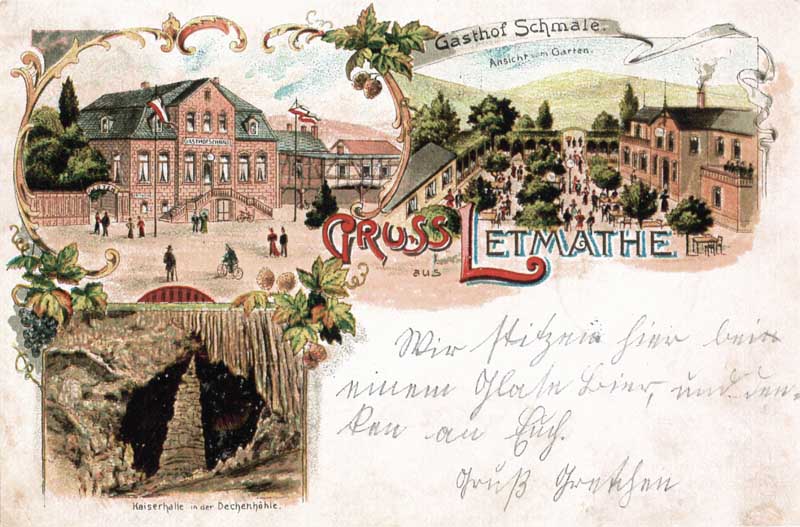 Gasthof Schmale.
Ansicht vom Garten.
GASTHOF SCHMALE
GRUSS
aus
LETMATHE
Wir sitzen hier beim
einem Glase Bier, und den-
ken an Euch.
Gruß Gretchen
Kaiserhalle in der Dechenhöhle.